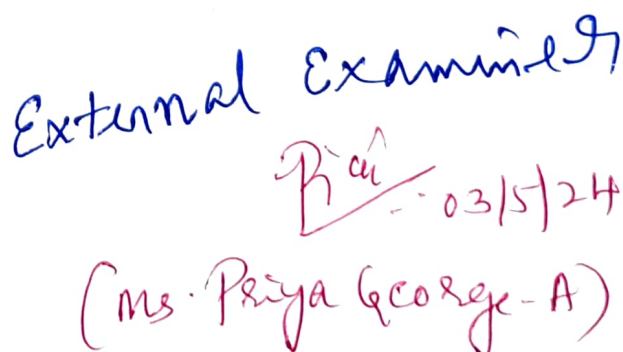 External Examiner
03/5/24
(Ms. Priya George-A)